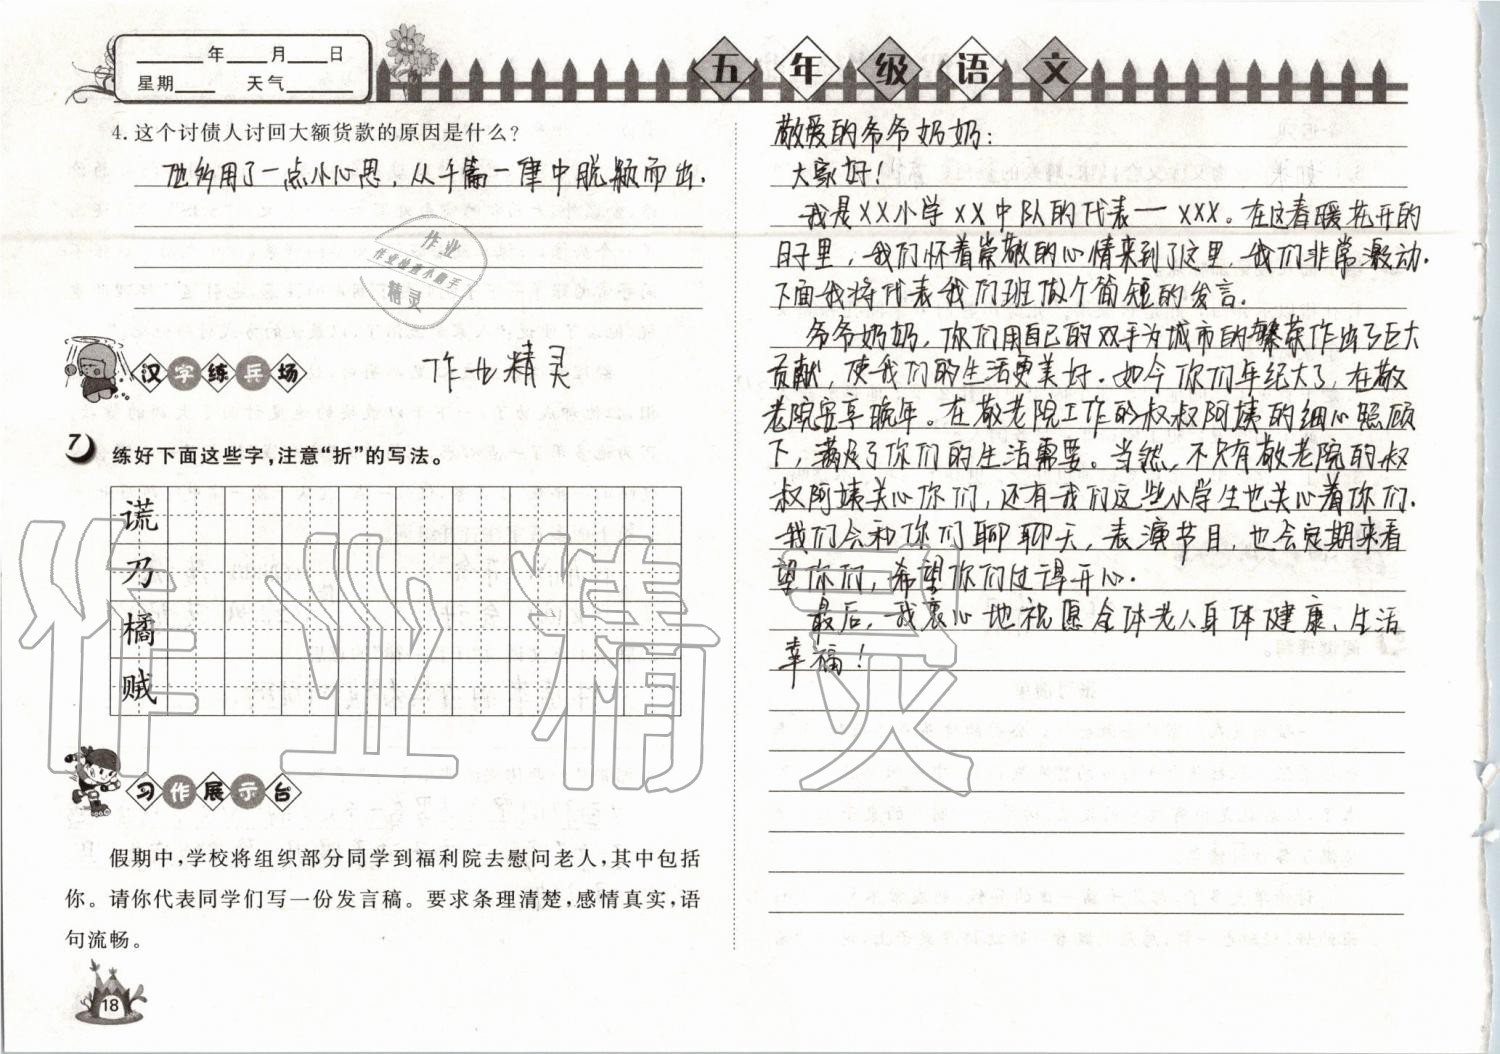 ____年____月____日
星期____ 天气______
五年级语文
4.这个讨债人讨回大额货款的原因是什么?
他多用了一点小心思,从千篇一律中脱颖而出.
作业
作业精灵
汉字练兵场
作业精灵
7
练好下面这些字,注意“折”的写法。
谎
乃
橘
贼
作业精灵
习作展示台
假期中,学校将组织部分同学到福利院去慰问老人,其中包括
你。请你代表同学们写一份发言稿。要求条理清楚,感情真实,语
句流畅。
18
敬爱的爷爷奶奶:
大家好!
我是XX小学XX中队的代表一XXX。在这春暖花开的
日子里,我们怀着崇敬的心情来到了这里,我们非常激动.
下面我将代表我们班做个简短的发言.
爷爷奶奶,你们用自己的双手为城市的繁荣作出了巨大
贡献,使我们的生活更美好.如今你们年纪大了,在敬
老院安享晚年。在敬老院工作的叔叔阿姨的细心照顾
下,满足了你们的生活需要。当然,不只有敬老院的叔
叔阿姨关心你们,还有我们这些小学生也关心着你们.
我们会和你们聊聊天,表演节目,也会定期来看
望你们,希望你们过得开心.
最后,我衷心地祝愿全体老人身体健康、生活
幸福!